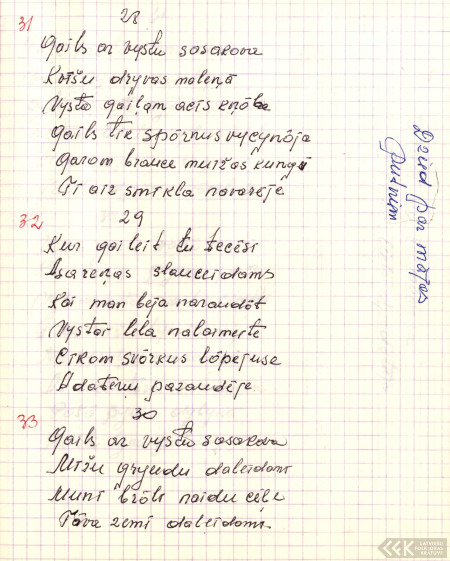 31 28
Gails ar vystu sasakove
Kvīšu dryvas maleņā
Vysta gaiļam acis kņōbe
Gails tik spōrnus vycynōja
Garom brauce muižas kungi
Ti aiz smīkla navarēje
32 29
Kur gaileit tu tecēsi
Asareņas slauceidams
Kai man beja naraudōt
Vystai lela nalaimeite
Cikom svōrkus lōpejuse
Adateņu pazaudēje
33 30
Gails ar vystu sasakove
Mīžu gryudu daleidami
Muni brōli naidu ceļe
Tāva zemi daleidami
Dzied par mājas
Putnim
LATVIEŠU
FOLKLORAS
KRĀTUVE